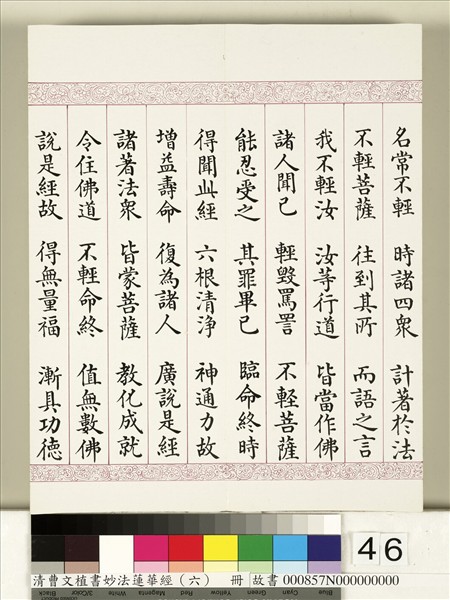 名常不輕　時諸四衆　計著於法
不輕菩薩　往到其所　而語之言
我不輕汝　汝等行道　皆當作佛
諸人聞已　輕毀罵詈　不輕菩薩
能忍受之　其罪畢已　臨命終時
得聞此經　六根清淨　神通力故
增益壽命　復為諸人　廣說是經
諸著法衆　皆蒙菩薩　教化成就
令住佛道　不輕命終　值無數佛
說是經故　得無量福　漸具功德
46
清曹文植書妙法蓮華經（六）　冊 故書 000857N000000000